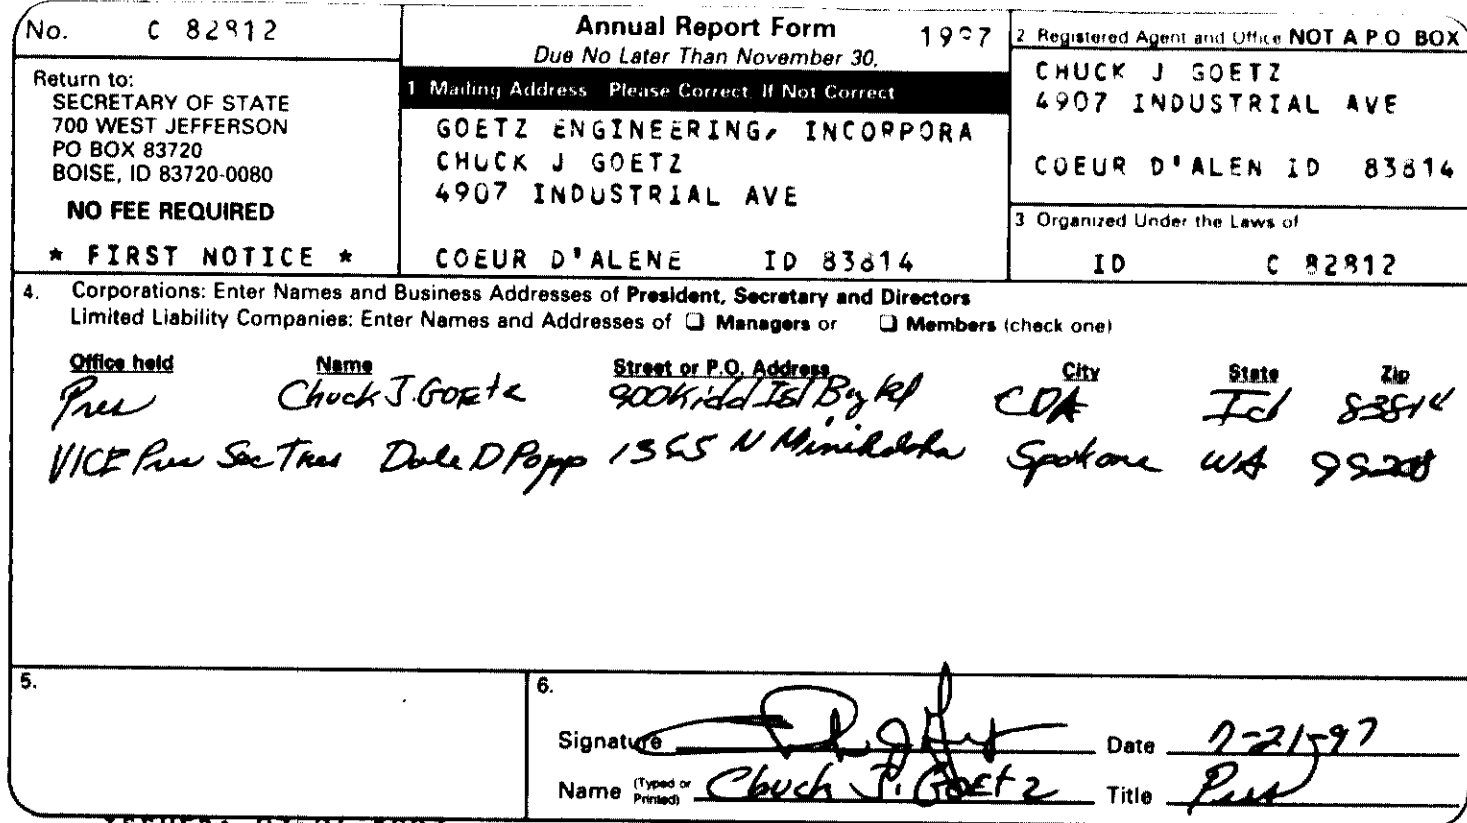 No. C 82812
Annual Report Form 1997
Due No Later Than November 30,
Return to:
SECRETARY OF STATE
700 WEST JEFFERSON
PO BOX 83720
BOISE, ID 83720-0080
NO FEE REQUIRED
* FIRST NOTICE *
1 Mailing Address Please Correct, If Not Correct
GOETZ ENGINEERING, INCORPORA
CHUCK J GOETZ
4907 INDUSTRIAL AVE
COEUR D'ALENE ID 83814
2 Registered Agent and Office NOT A P.O BOX
CHUCK J GOETZ
4907 INDUSTRIAL AVE
COEUR D'ALEN ID 83814
3 Organized Under the Laws of
ID C 82812
4. Corporations: Enter Names and Business Addresses of President, Secretary and Directors
Limited Liability Companies: Enter Names and Addresses of ❑ Managers or ❑ Members (check one)
Office held Name Street or P.O. Address City State Zip
Pres Chuck J. Goetz 900 Kidd Isl Bay Rd CDA Id 83814
VICE Pres Sec Tres Dale D Popp N Spokane WA
5.
6.
Signature Date 7-21-97
Name (Typed or Printed) Chuck J. Goetz Title Pres